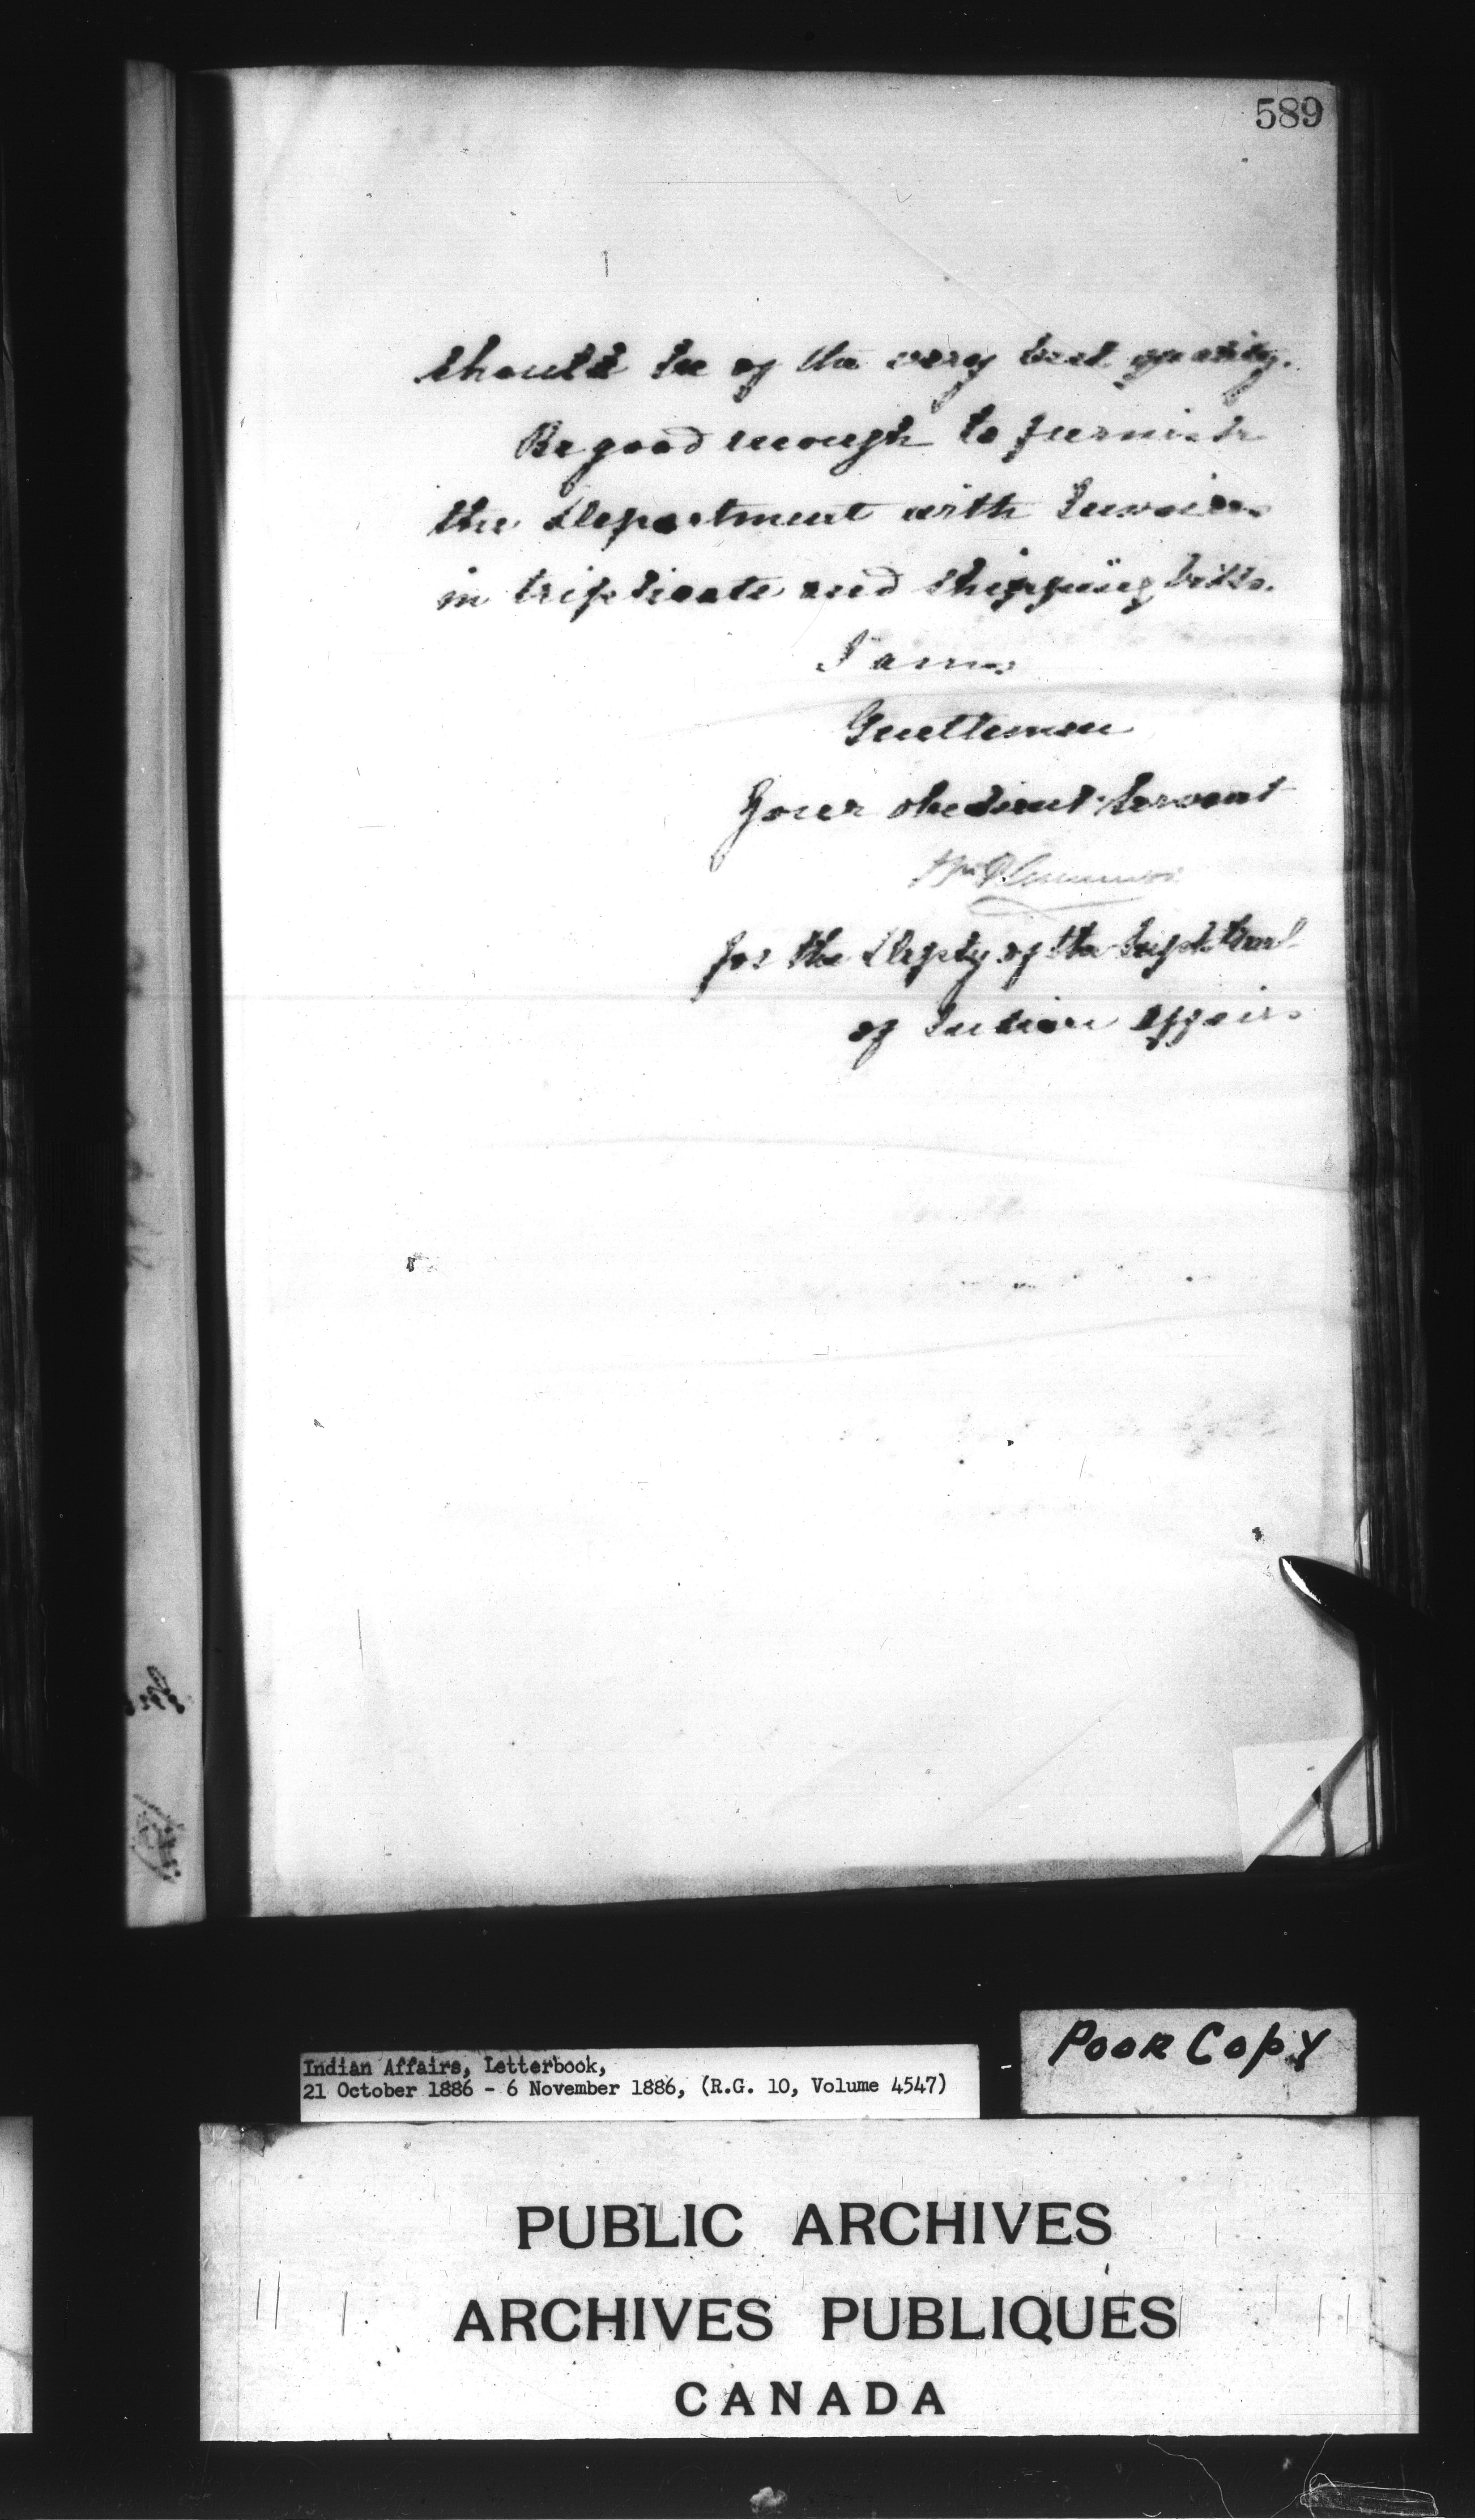 589
should be of the very best quality.
Be good enough to furnish
the Department with Invoices
in triplicate and shipping bills.
I am
Gentlemen
Your obedient Servant
for the Depty of the Supt. Genl
of Indian Affairs
Indian Affairs, Letterbook,
21 October 1886 - 6 November 1886, (R.G. 10, Volume 4547)
POOR COPY
PUBLIC ARCHIVES
ARCHIVES PUBLIQUES
CANADA